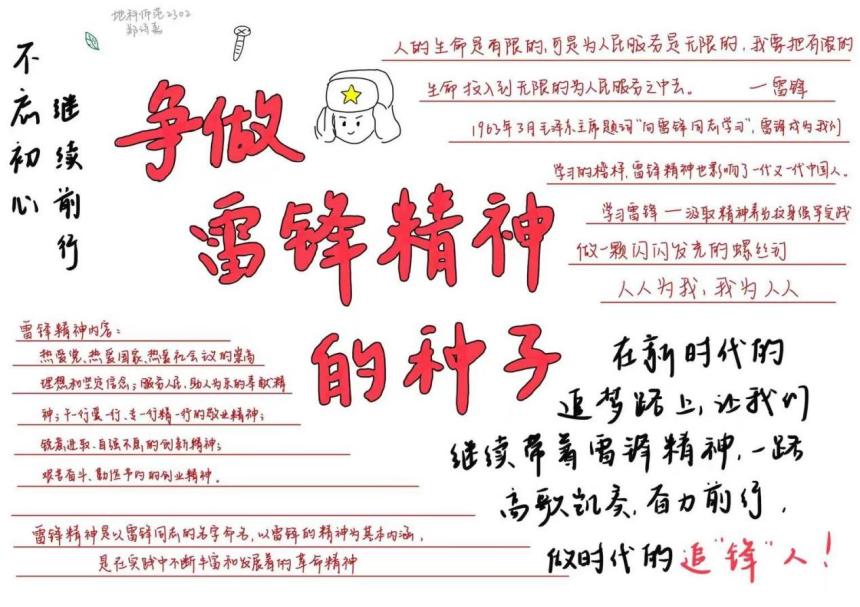 地科师范2302
郑诗嘉
不忘初心
继续前行
争做
雷锋精神
的种子
人的生命是有限的,可是为人民服务是无限的,我要把有限的
生命投入到无限的为人民服务之中去。 —雷锋
1963年3月毛泽东主席题词"向雷锋同志学习",雷锋成为我们
学习的榜样,雷锋精神也影响了一代又一代中国人。
学习雷锋—汲取精神着力投身强军实践
做一颗闪闪发光的螺丝钉
人人为我,我为人人
雷锋精神内容:
热爱党、热爱国家、热爱社会主义的崇高
理想和坚定信念;服务人民,助人为乐的奉献精
神;干一行爱一行、专一行精一行的敬业精神;
锐意进取、自强不息的创新精神;
艰苦奋斗、勤俭节约的创业精神。
雷锋精神是以雷锋同志的名字命名,以雷锋的精神为基本内涵,
是在实践中不断丰富和发展着的革命精神
在新时代的
追梦路上,让我们
继续带着雷锋精神,一路
高歌凯奏,奋力前行,
做时代的追"锋"人!